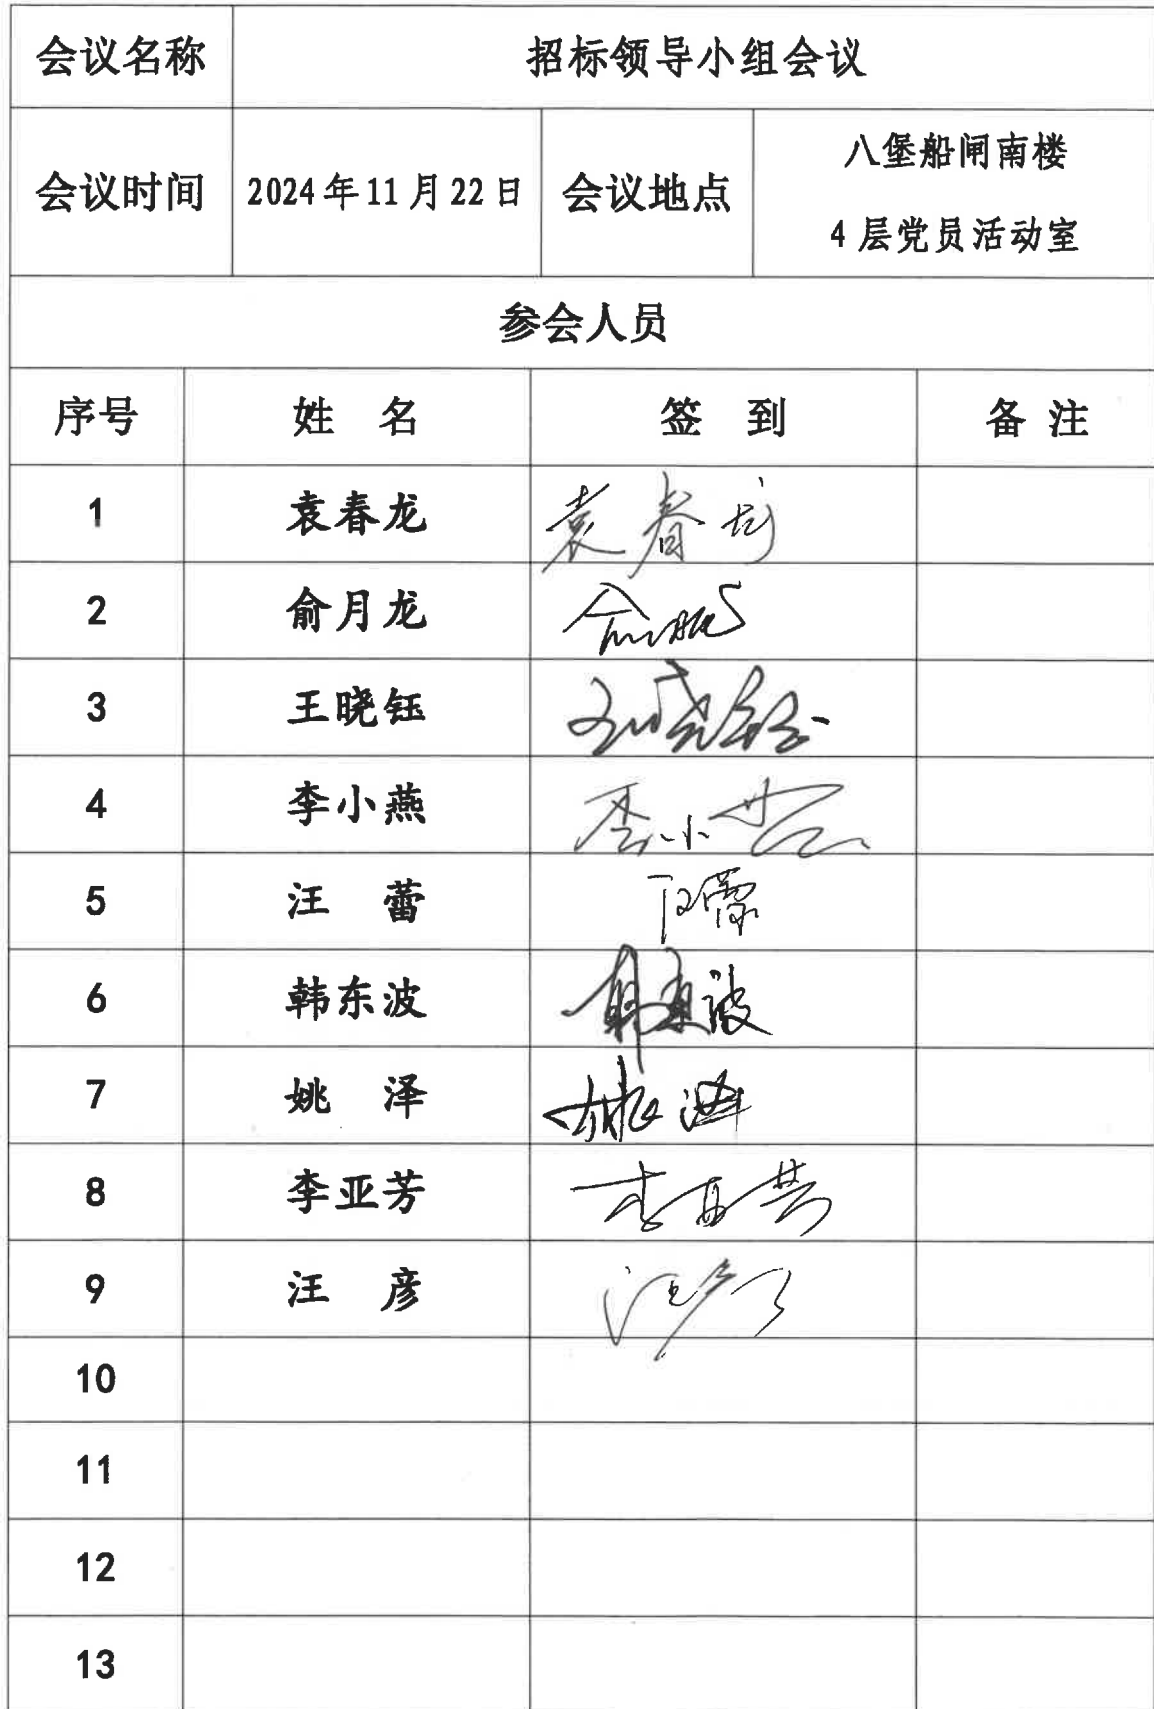 会议名称 招标领导小组会议
会议时间 2024年11月22日 会议地点 八堡船闸南楼
4层党员活动室
参会人员
序号 姓 名 签 到 备 注
1 袁春龙 袁春龙
2 俞月龙 俞月龙
3 王晓钰 王晓钰
4 李小燕 李小燕
5 汪 蕾 汪蕾
6 韩东波 韩东波
7 姚 泽 姚泽
8 李亚芳 李亚芳
9 汪 彦 汪彦
10
11
12
13